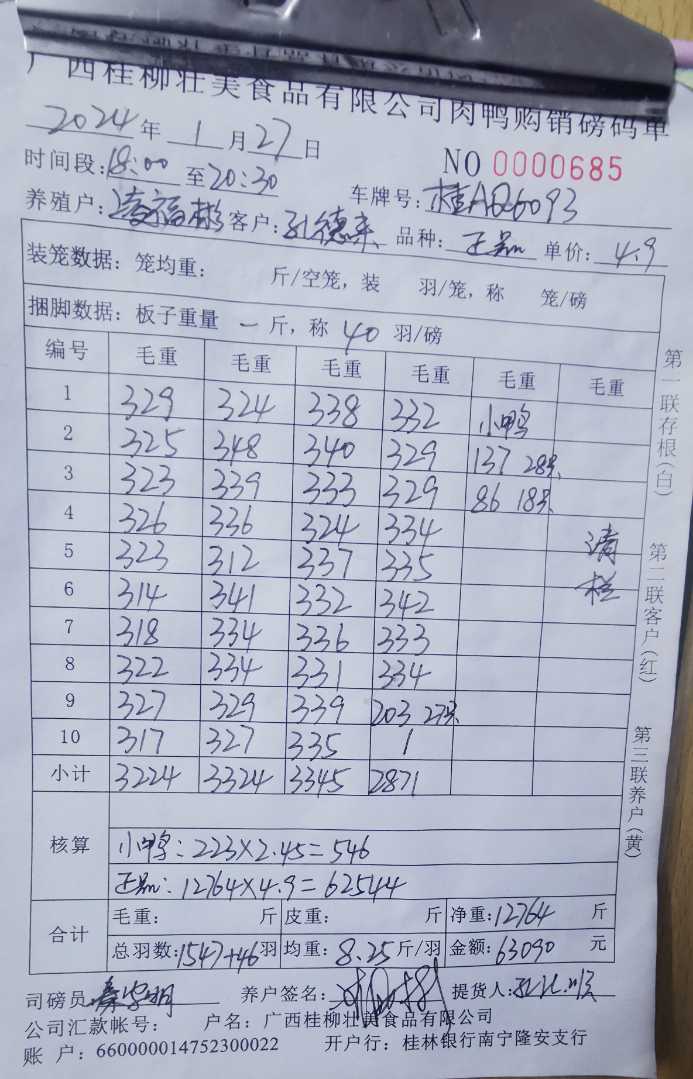 广西桂柳壮美食品有限公司肉鸭购销磅码单
2024年1月27日
NO 0000685
时间段:18:00至20:30
车牌号:桂AQ6093
养殖户:凌福彬 客户:孔德来 品种:正品 单价:4.9
装笼数据:笼均重: 斤/空笼,装 羽/笼,称 笼/磅
捆脚数据:板子重量 一 斤,称40羽/磅
编号 毛重 毛重 毛重 毛重 毛重 毛重
1 329 324 338 332 小鸭
2 325 348 340 329 137 28只
3 323 339 333 329 86 18只
4 326 336 324 334
5 323 312 337 335
清栏
6 314 341 332 342
7 318 334 336 333
8 322 334 331 334
9 327 329 339 203 27只
10 317 327 335 1
小计 3224 3324 3345 2871
核算
小鸭:223×2.45=546
正品:12764×4.9=62544
合计
毛重: 斤 皮重: 斤 净重:12764 斤
总羽数:1547+46羽 均重:8.25斤/羽 金额:63090 元
司磅员: 养户签名: 提货人:
公司汇款帐号: 户名:广西桂柳壮美食品有限公司
账 户:660000014752300022 开户行:桂林银行南宁隆安支行
第一联存根(白)
第二联客户(红)
第三联养户(黄)